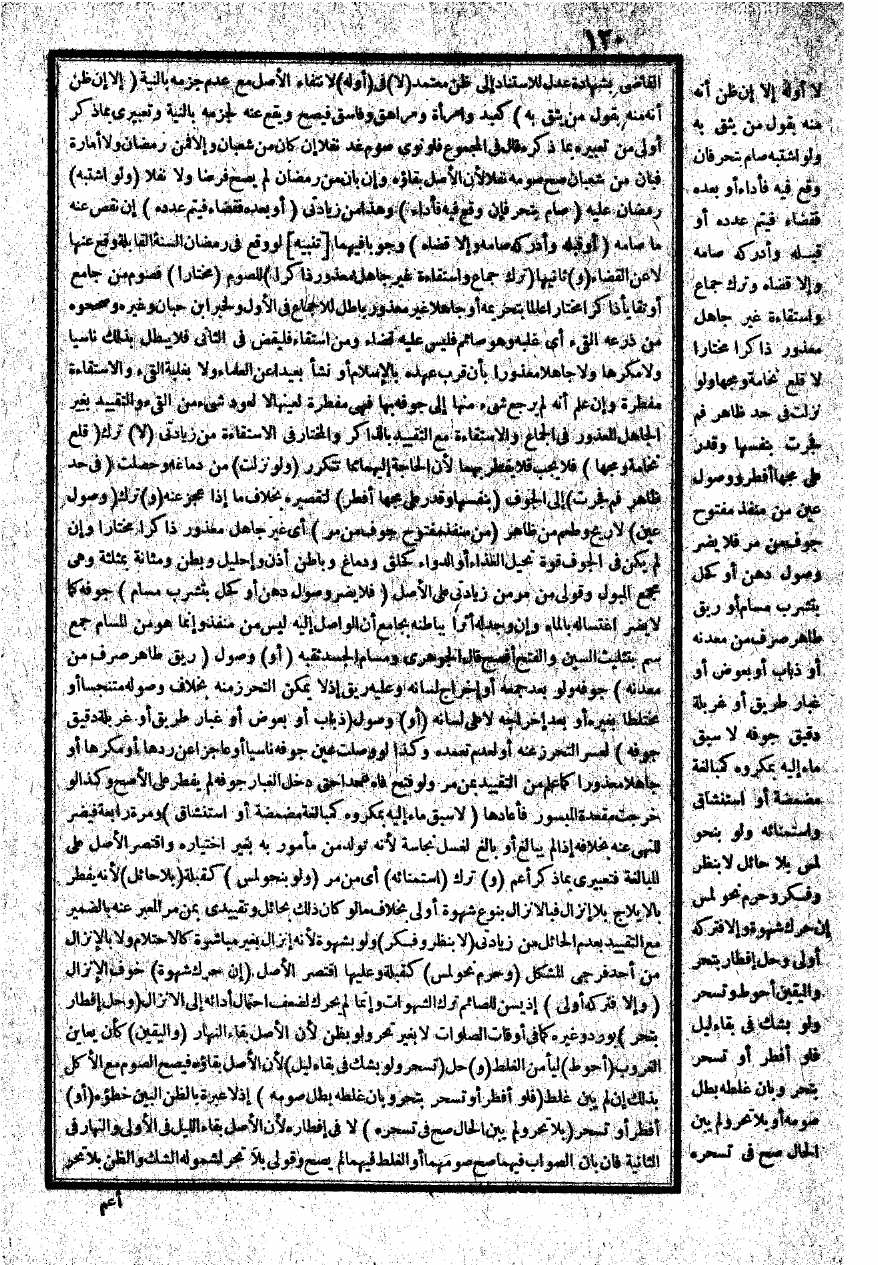 ١٢٠
القاضى بشهادة عدل للاستناد إلى ظن معتمد (لا) فى (أوله) لانتفاء الأصل مع عدم جزمه بالنية ( إلا إن ظن
أنه منه بقول من يثق به ) كعبد وامرأة ومراهق وفاسق فيصح ويقع عنه لجزمه بالنية وتعبيرى بماذكر
أولى من تعبيره بما ذكره قال فى المجموع فلو نوى صوم غد نفلا إن كان من شعبان وإلا فمن رمضان ولا أمارة
فبان من شعبان صح صومه نفلا لأن الأصل بقاؤه وإن بان من رمضان لم يصح فرضا ولا نفلا (ولو اشتبه)
رمضان عليه ( صام بتحر فإن وقع فيه فأداء ) وهذا من زيادتى ( أو بعده فقضاء فيتم عدده ) إن نقص عنه
ما صامه ( أو قبله وأدركه صامه وإلا قضاه ) وجوبا فيهما [تنبيه] لو وقع فى رمضان السنة القابلة وقع عنها
لا عن القضاء (و) ثانيها (ترك جماع واستقاءة غير جاهل معذور ذاكرا ) للصوم (مختارا ) فصوم من جامع
أو تقايأ ذاكرا مختارا عالما بتحريمه أو جاهلا غير معذور باطل للاجماع فى الأول ولخبر ابن حبان وغيره وصححوه
من ذرعه القىء أى غلبه وهو صائم فليس عليه قضاء ومن استقاء فليقض فى الثانى فلا يبطل بذلك ناسيا
ولا مكرها ولا جاهلا معذورا بأن قرب عهده بالإسلام أو نشأ بعيدا عن العلماء ولا بغلبة القىء والاستقاءة
مفطرة وإن علم أنه لم يرجع شىء منها إلى جوفه بها فهى مفطرة لعينها لا لعود شىء من القىء والتقييد بغير
الجاهل المعذور فى الجماع والاستقاءة مع التقييد بالذاكر والمختار فى الاستقاءة من زيادتى (لا) ترك ( قلع
نخامة ومجها ) فلا يجب فلا يفطر بهما لأن الحاجة إليهما مما تتكرر (ولو نزلت) من دماغه وحصلت ( فى حد
ظاهر فم فجرت) إلى الجوف (بنفسها وقدر على مجها أفطر) لتقصيره بخلاف ما إذا عجز عنه (و) ترك (وصول
عين) لا ريح وطعم من ظاهر (من منفذ مفتوح جوف من مر ) أى غير جاهل معذور ذاكرا مختارا وإن
لم يكن فى الجوف قوة تحيل الغذاء أو الدواء كحلق ودماغ وباطن أذن وإحليل وبطن ومثانة بمثلثة وهى
مجمع البول وقولى من مر من زيادتى على الأصل ( فلا يضر وصول دهن أو كحل بتشرب مسام ) جوفه كما
لا يضر اغتساله بالماء وإن وجد له أثرا بباطنه بجامع أن الواصل إليه ليس من منفذ وإنما هو من المسام جمع
سم بتثليث السين والفتح أفصح قال الجوهرى ومسام الجسد ثقبه (أو) وصول ( ريق طاهر صرف من
معدنه ) جوفه ولو بعد جمعه أو إخراج لسانه وعليه ريق إذ لا يمكن التحرز منه بخلاف وصوله متنجسا أو
مختلطا بغيره أو بعد إخراجه لا على لسانه (أو) وصول (ذباب أو بعوض أو غبار طريق أو غربلة دقيق
جوفه ) لعسر التحرز عنه أو لعدم تعمده وكذا لو وصلت عين جوفه ناسيا أو عاجزا عن ردها أو مكرها أو
جاهلا معذورا كما علم من التقييد بمن مر ولو فتح فاه عمدا حتى دخل الغبار جوفه لم يفطر على الأصح وكذا لو
خرجت مقعدة المبسور فأعادها ( لا سبق ماء إليه بمكروه كمبالغة مضمضة أو استنشاق ) ومرة رابعة فيضر
للنهى عنه بخلافه إذا لم يبالغ أو بالغ لغسل نجاسة لأنه تولد من مأمور به بغير اختياره واقتصر الأصل على
المبالغة فتعبيرى بما ذكر أعم (و) ترك (استمنائه) أى من مر (ولو بنحو لمس ) كقبلة (بلا حائل) لأنه يفطر
بالايلاج بلا إنزال فبالانزال بنوع شهوة أولى بخلاف ما لو كان ذلك بحائل وتقييدى بمن مر المعبر عنه بالضمير
مع التقييد بعدم الحائل من زيادتى (لا بنظر وفكر) ولو بشهوة لأنه إنزال بغير مباشرة كالاحتلام ولا بالإنزال
من أحد فرجى المشكل (وحرم نحو لمس) كقبلة وعليها اقتصر الأصل (إن حرك شهوة) خوف الإنزال
( وإلا فتركه أولى ) إذ يسن للصائم ترك الشهوات وإنما لم يحرك لضعف احتمال أدائه إلى الانزال (وحل إفطار
بتحر )بورد وغيره كما فى أوقات الصلوات لا بغير تحر ولو بظن لأن الأصل بقاء النهار (واليقين) كأن يعاين
الغروب (أحوط) ليأمن الغلط (و) حل (تسحر ولو بشك فى بقاء ليل) لأن الأصل بقاؤه فيصح الصوم مع الأكل
بذلك إن لم يبن غلط (فلو أفطر أو تسحر بتحر وبان غلطه بطل صومه ) إذ لا عبرة بالظن البين خطؤه (أو)
أفطر أو تسحر (بلا تحر ولم يبن الحال صح فى تسحره ) لا فى إفطاره لأن الأصل بقاء الليل فى الأولى والنهار فى
الثانية فان بان الصواب فيهما صح صومهما أو الغلط فيهما لم يصح وقولى بلا تحر لشموله الشك والظن بلا تحر
أعم
لا أوله إلا إن ظن أنه
منه بقول من يثق به
ولو اشتبه صام بتحر فان
وقع فيه فأداء أو بعده
فقضاء فيتم عدده أو
قبله وأدركه صامه
وإلا قضاه وترك جماع
واستقاءة غير جاهل
معذور ذاكرا مختارا
لا قلع نخامة ومجها ولو
نزلت فى حد ظاهر فم
فجرت بنفسها وقدر
على مجها أفطر ووصول
عين من منفذ مفتوح
جوف من مر فلا يضر
وصول دهن أو كحل
بتشرب مسام أو ريق
طاهر صرف من معدنه
أو ذباب أو بعوض أو
غبار طريق أو غربلة
دقيق جوفه لا سبق
ماء إليه بمكروه كمبالغة
مضمضة أو استنشاق
واستمنائه ولو بنحو
لمس بلا حائل لا بنظر
وفكر وحرم نحو لمس
إن حرك شهوة وإلا فتركه
أولى وحل إفطار بتحر
واليقين أحوط وتسحر
ولو بشك فى بقاء ليل
فلو أفطر أو تسحر
بتحر وبان غلطه بطل
صومه أو بلا تحر ولم يبن
الحال صح فى تسحره